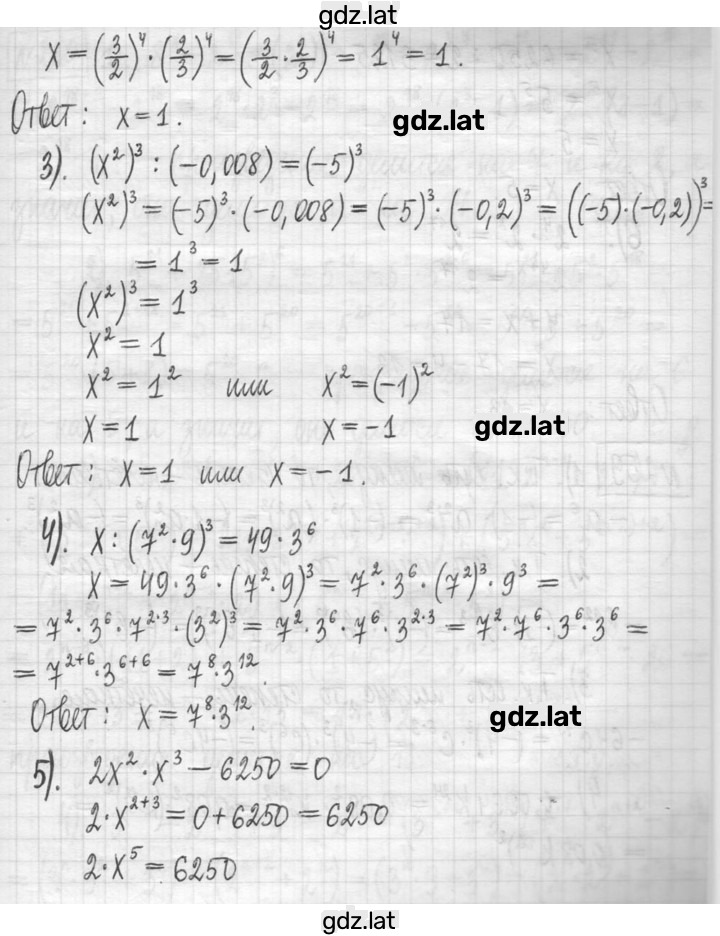 gdz.lat
x = (3/2)⁴ · (2/3)⁴ = (3/2 · 2/3)⁴ = 1⁴ = 1.
Ответ: x = 1.
gdz.lat
3). (x²)³ : (−0,008) = (−5)³
(x²)³ = (−5)³ · (−0,008) = (−5)³ · (−0,2)³ = ((−5)·(−0,2))³ =
= 1³ = 1
(x²)³ = 1³
x² = 1
x² = 1² или x² = (−1)²
x = 1 x = −1
gdz.lat
Ответ: x = 1 или x = −1.
4). x : (7² · 9)³ = 49 · 3⁶
x = 49 · 3⁶ · (7² · 9)³ = 7² · 3⁶ · (7²)³ · 9³ =
= 7² · 3⁶ · 7²·³ · (3²)³ = 7² · 3⁶ · 7⁶ · 3²·³ = 7² · 7⁶ · 3⁶ · 3⁶ =
= 7²⁺⁶ · 3⁶⁺⁶ = 7⁸ · 3¹².
Ответ: x = 7⁸ · 3¹²
gdz.lat
5). 2x² · x³ − 6250 = 0
2 · x²⁺³ = 0 + 6250 = 6250
2 · x⁵ = 6250
gdz.lat